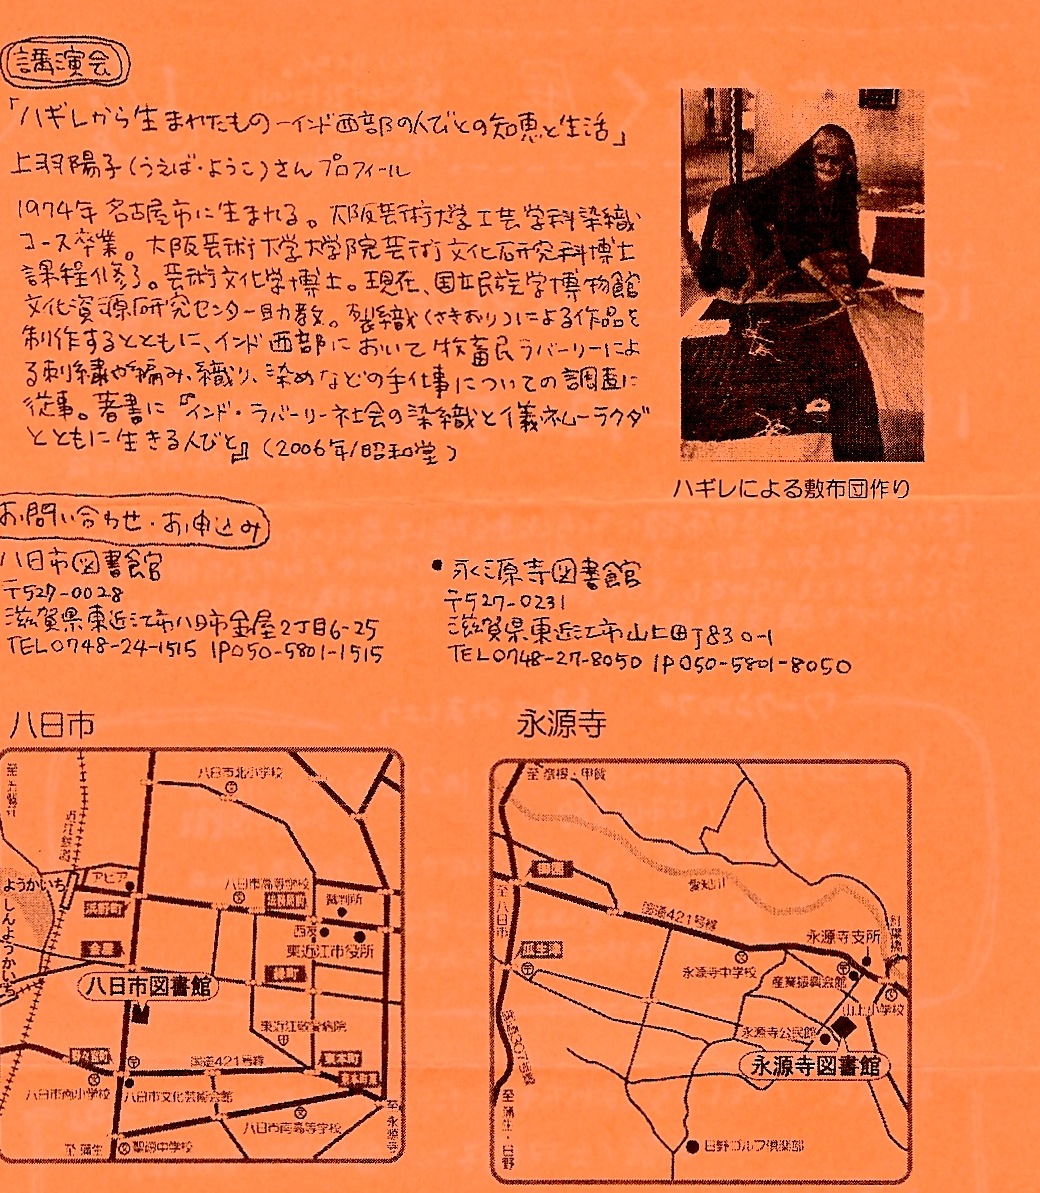 講演会
「ハギレから生まれたもの－インド西部の人びとの知恵と生活」
上羽陽子（うえば・ようこ）さん プロフィール
1974年名古屋市に生まれる。大阪芸術大学工芸学科染織
コース卒業。大阪芸術大学大学院芸術文化研究科博士
課程修了。芸術文化学博士。現在、国立民族学博物館
文化資源研究センター助教。裂織（さきおり）による作品を
制作するとともに、インド西部において牧畜民ラバーリーによ
る刺繍や編み、織り、染めなどの手仕事についての調査に
従事。著書に『インド・ラバーリー社会の染織と儀礼－ラクダ
とともに生きる人びと』（2006年/昭和堂）
ハギレによる敷布団作り
お問い合わせ・お申込み
八日市図書館
〒527-0028
滋賀県東近江市八日市金屋2丁目6-25
TEL0748-24-1515 IP050-5801-1515
・永源寺図書館
〒527-0231
滋賀県東近江市山上町830-1
TEL0748-27-8050 IP050-5801-8050
八日市
八日市北小学校
近江鉄道
ようかいち
アピア
浜野町
八日市高等学校
裁判所
西友
東近江市役所
しんようかいち
金屋
八日市図書館
東近江敬愛病院
国道421号線
東本町
八日市南小学校
八日市文化芸術会館
八日市南高等学校
至 永源寺
至 蒲生
聖徳中学校
永源寺
至 彦根・甲賀
愛知川
国道421号線
至 八日市
永源寺支所
永源寺中学校
産業振興会館
山上小学校
永源寺公民館
永源寺図書館
国道307号線
至 蒲生・日野
日野ゴルフ倶楽部